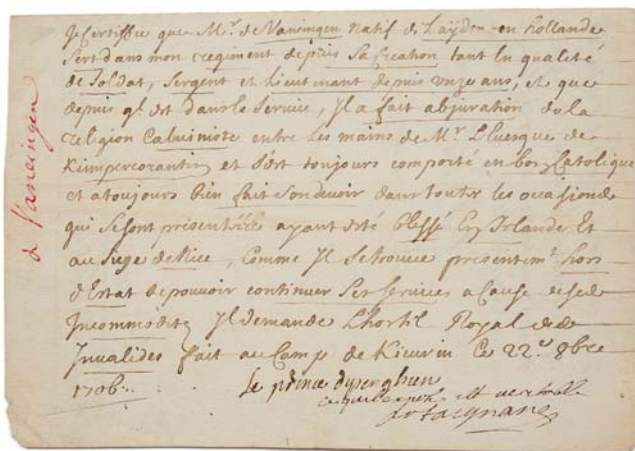 Je Certiffie que Mr. de Vaneingen natif de Laÿden en hollande
sert dans mon regiment depuis sa creation tant en qualité
de Soldat, sergent et Lieutenant depuis unze ans, et que
depuis ql est dans le service, Jl a fait abjuration de la
religion Caluiniste entre les mains de Mr. Lluesque de
Kimpercorantin et s'est toujours comporté en bon Catolique
et a toujours bien fait son devoir dans toutes les occasions
qui se sont presentées ayant esté blessé En Irlande Et
au siege de Nice, Comme Jl se trouve presentemt. hors
d'Estat de pouvoir continuer ses services a Cause de ses
Incommoditez Jl demande Lhostel Royal des
Invalides fait au Camp de Kieurin Ce 22e. 8bre
1706.
Le prince
est
de Vaneingen